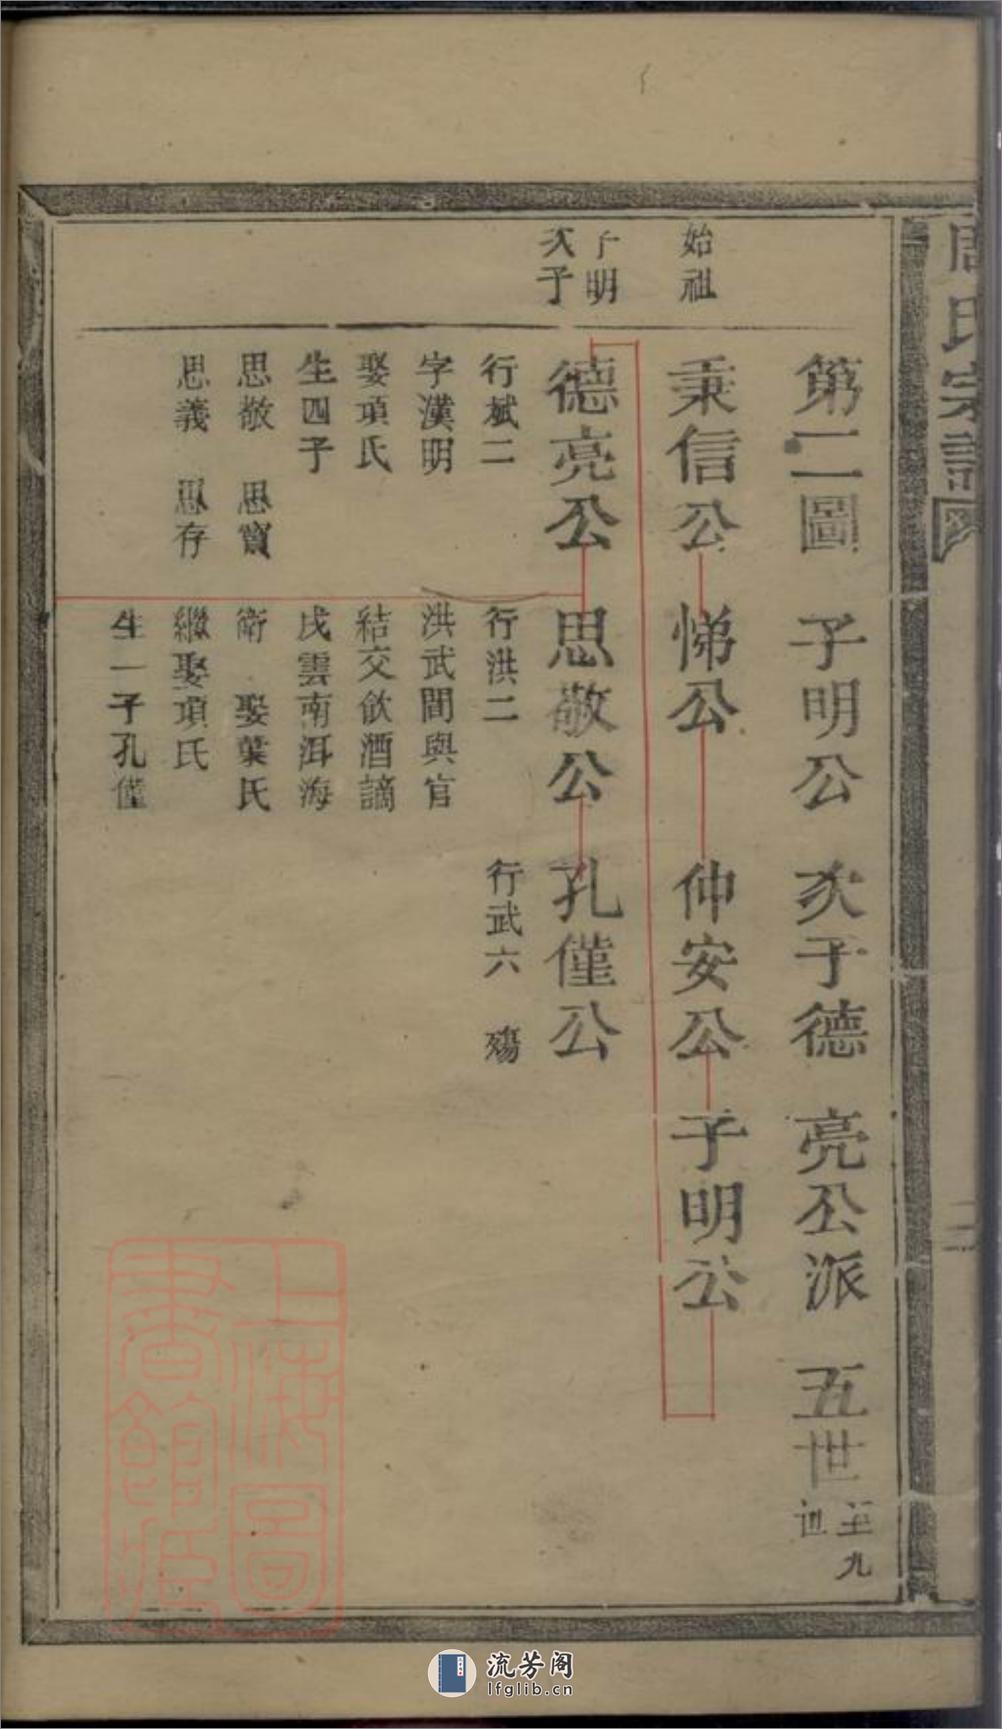 周氏宗譜
二
第二圖 子明公 次子德 亮公派 五世至九世
始祖
秉信公 悌公 仲安公 子明公
子明
次子
德亮公 思敬公 孔僅公
行斌二
字漢明
娶項氏
生四子
思敬 思寶
思義 思存
行洪二
洪武間與官
結交飲酒謫
戍雲南洱海
衛 娶葉氏
繼娶項氏
生一子孔僅
行武六 殤
上海圖
書館藏
流芳阁
lfglib.cn